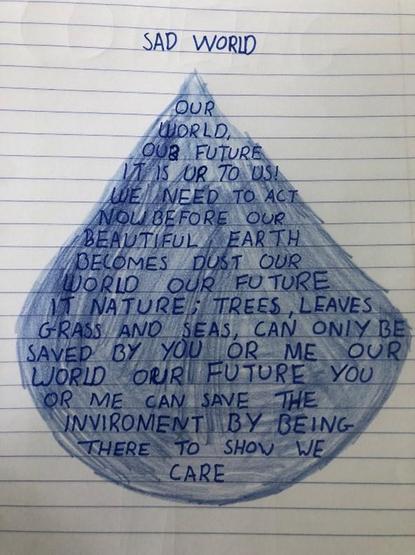 SAD WORLD
OUR
WORLD,
OUR FUTURE
IT IS UP TO US!
WE NEED TO ACT
NOW BEFORE OUR
BEAUTIFUL EARTH
BECOMES DUST OUR
WORLD OUR FUTURE
IT NATURE; TREES, LEAVES
GRASS AND SEAS, CAN ONLY BE
SAVED BY YOU OR ME OUR
WORLD OUR FUTURE YOU
OR ME CAN SAVE THE
INVIROMENT BY BEING
THERE TO SHOW WE
CARE